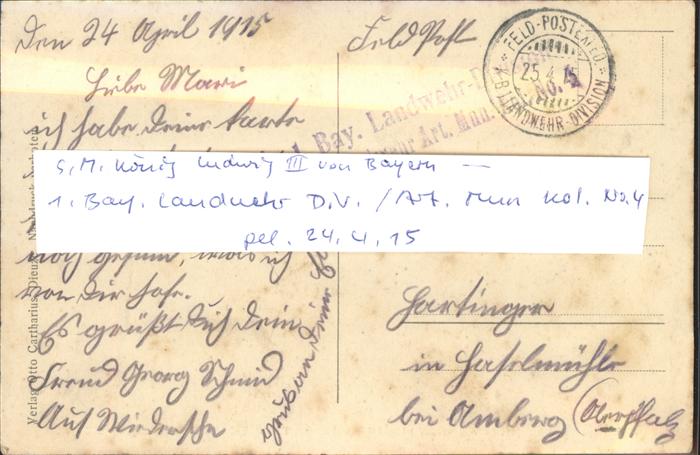 Den 24 April 1915
Liebe Mari
ich habe deine Karte
S. M. König Ludwig III von Bayern —
1. Bay. Landwehr Div. / Art. Mun Kol. No. 4
gel. 24. 4. 15
noch gesund, was ich
von Dir hofe.
Es grüßt Dich Dein
Freund Georg Schmid
Auf Wiedersehn
Verlag Otto Cartharius, Dieuze
Feldpost
FELD-POSTEXPED.
25 4 15
LANDWEHR-DIVISION
Bay. Landwehr-
Art. Mun.
Hartinger
in Haselmühle
bei Amberg (Oberpfalz